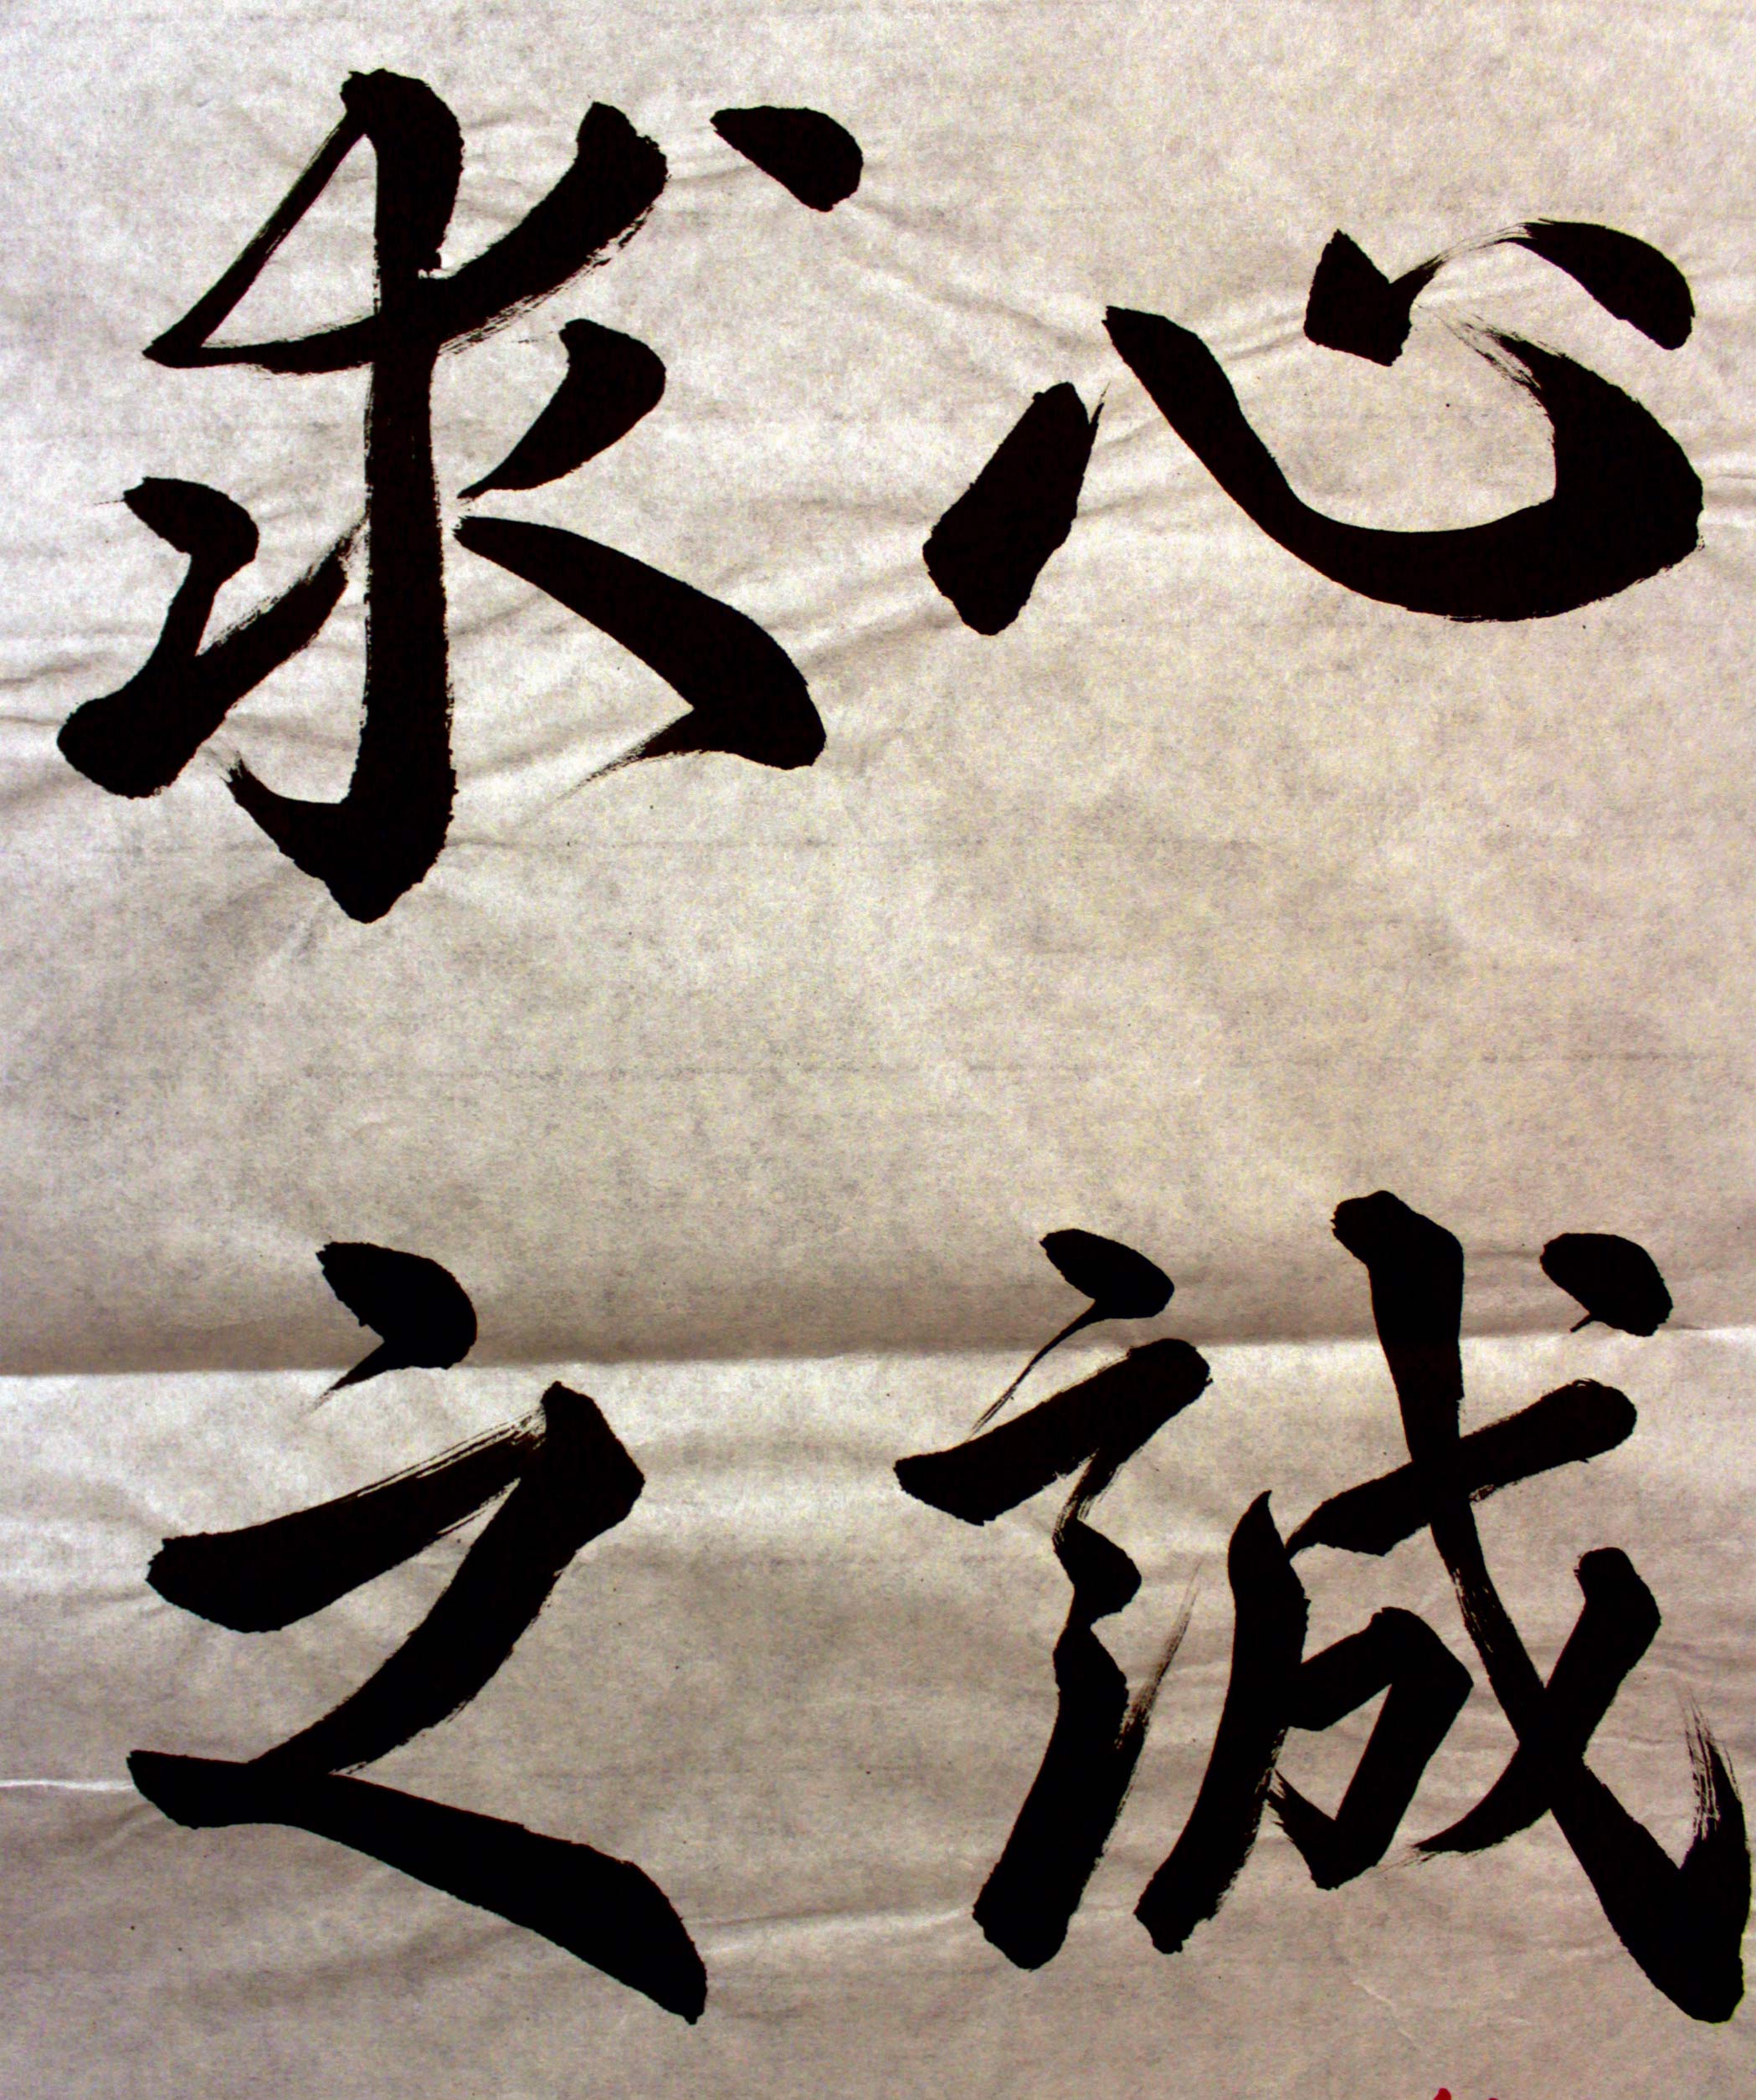 心誠
求之